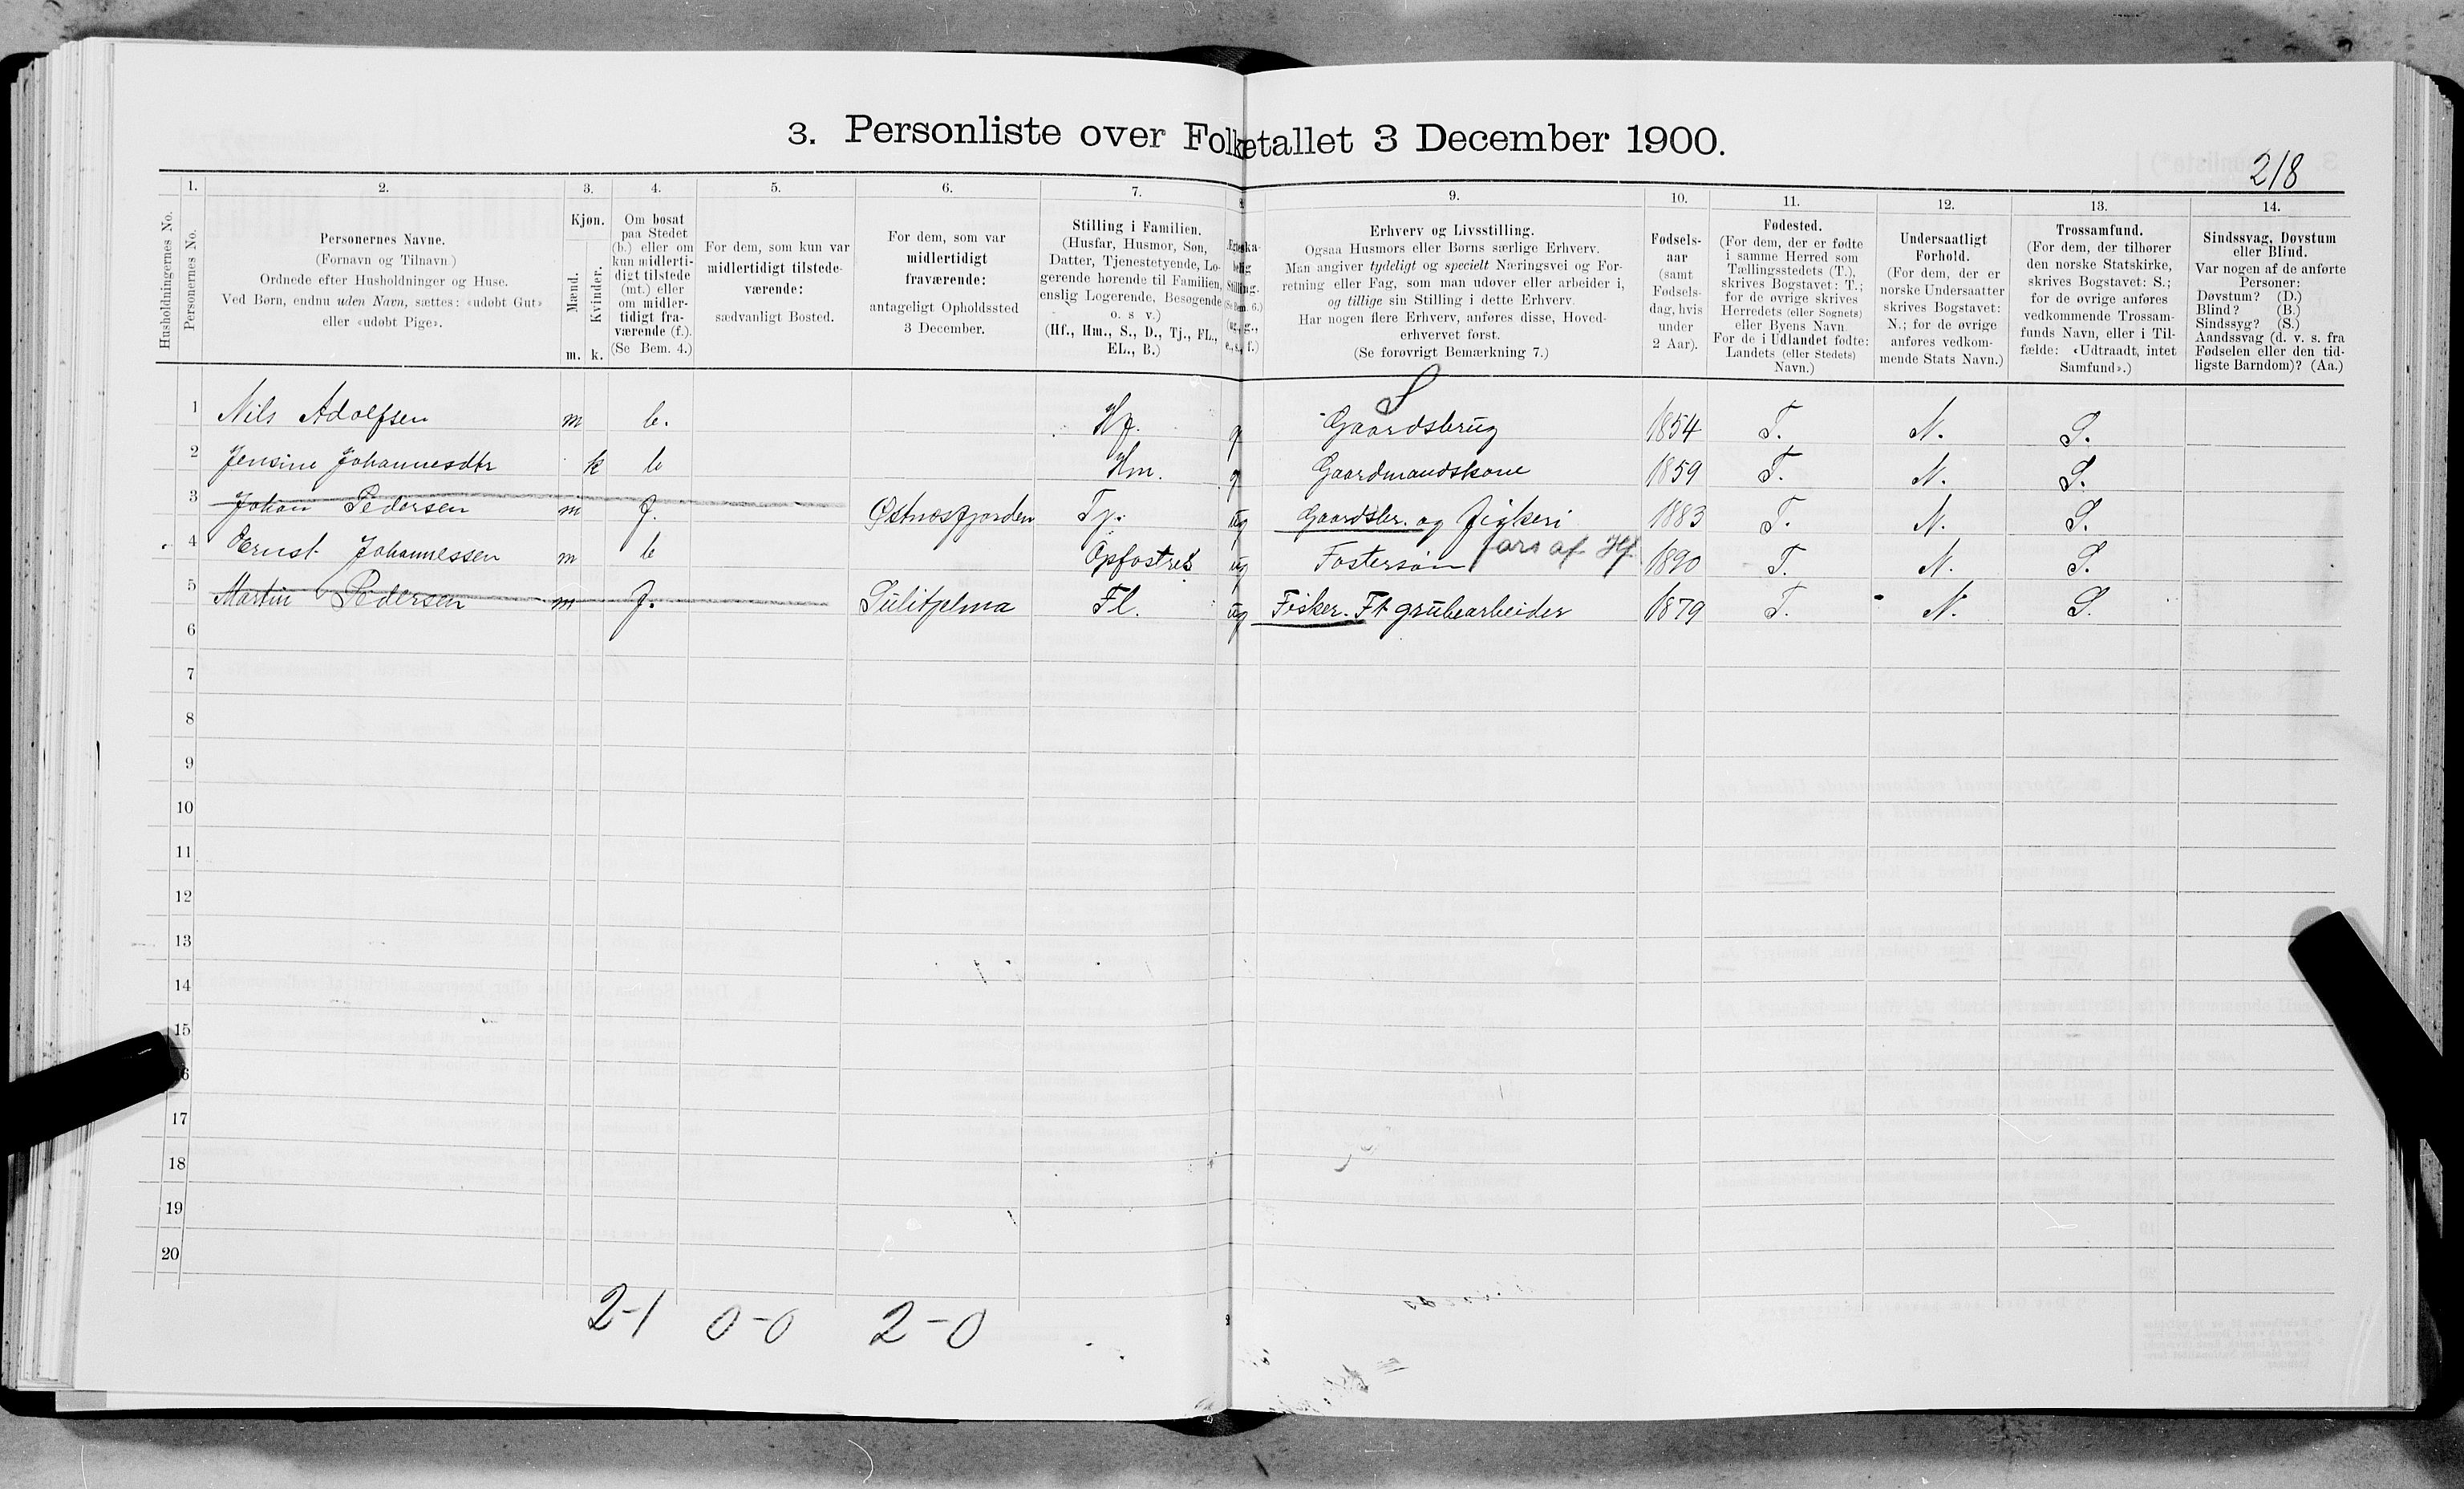 3. Personliste over Folketallet 3 December 1900.
218
1. 2. 3. 4. 5. 6. 7. 8. 9. 10. 11. 12. 13. 14.
Husholdningernes No.
Personernes No.
Personernes Navne.
(Fornavn og Tilnavn)
Ordnede efter Husholdninger og Huse.
Ved Børn, endnu uden Navn, sættes: «udøbt Gut»
eller «udøbt Pige».
Kjøn.
Mænd.
Kvinder.
m. k.
Om bosat
paa Stedet
(b.) eller om
kun midlerti-
digt tilstede
(mt.) eller
om midler-
tidigt fra-
værende (f.).
(Se Bem. 4.)
For dem, som kun var
midlertidigt tilstede-
værende:
sædvanligt Bosted.
For dem, som var
midlertidigt
fraværende:
antageligt Opholdssted
3 December.
Stilling i Familien.
(Husfar, Husmor, Søn,
Datter, Tjenestetyende, Lo-
gerende hørende til Familien,
enslig Logerende, Besøgende
o. s v.)
(Hf., Hm., S., D., Tj., FL.,
EL., B.)
Ægteska-
belig
Stilling.
(Se Bem. 6.)
(ug., g.,
e., s., f.)
Erhverv og Livsstilling.
Ogsaa Husmors eller Børns særlige Erhverv.
Man angiver tydeligt og specielt Næringsvei og For-
retning eller Fag, som man udøver eller arbeider i,
og tillige sin Stilling i dette Erhverv.
Har nogen flere Erhverv, anføres disse, Hoved-
erhvervet først.
(Se forøvrigt Bemærkning 7.)
Fødsels-
aar
(samt
Fødsels-
dag, hvis
under
2 Aar).
Fødested.
(For dem, der er fødte
i samme Herred som
Tællingsstedets (T.),
skrives Bogstavet: T.;
for de øvrige skrives
Herredets (eller Sognets)
eller Byens Navn
For de i Udlandet fødte:
Landets (eller Stedets)
Navn.)
Undersaatligt
Forhold.
(For dem, der er
norske Undersaatter
skrives Bogstavet:
N.; for de øvrige
anføres vedkom-
mende Stats Navn.)
Trossamfund.
(For dem, der tilhører
den norske Statskirke,
skrives Bogstavet: S.;
for de øvrige anføres
vedkommende Trossam-
funds Navn, eller i Til-
fælde: «Udtraadt, intet
Samfund».)
Sindssvag, Døvstum
eller Blind.
Var nogen af de anførte
Personer:
Døvstum? (D.)
Blind? (B.)
Sindssyg? (S.)
Aandssvag (d. v. s. fra
Fødselen eller den tid-
ligste Barndom)? (Aa.)
S
1 Nils Adolfsen m b. Hf. g Gaardsbrug 1854 T. N. S.
2 Jensine Johannesdtr k b Hm. g Gaardmandskone 1859 T. N. S.
3 Johan Pedersen m f. Østnesfjorden Tj. ug Gaardsbr. og Fiskeri 1883 T. N. S.
4 Ernst Johannessen m b Opfostret ug Fostersøn fors af Hf 1890 T. N. S.
5 Martin Pedersen m f. Sulitjelma Fl. ug Fisker. Ft grubearbeider 1879 T. N. S.
6
7
8
9
10
11
12
13
14
15
16
17
18
19
20
2-1 0-0 2-0